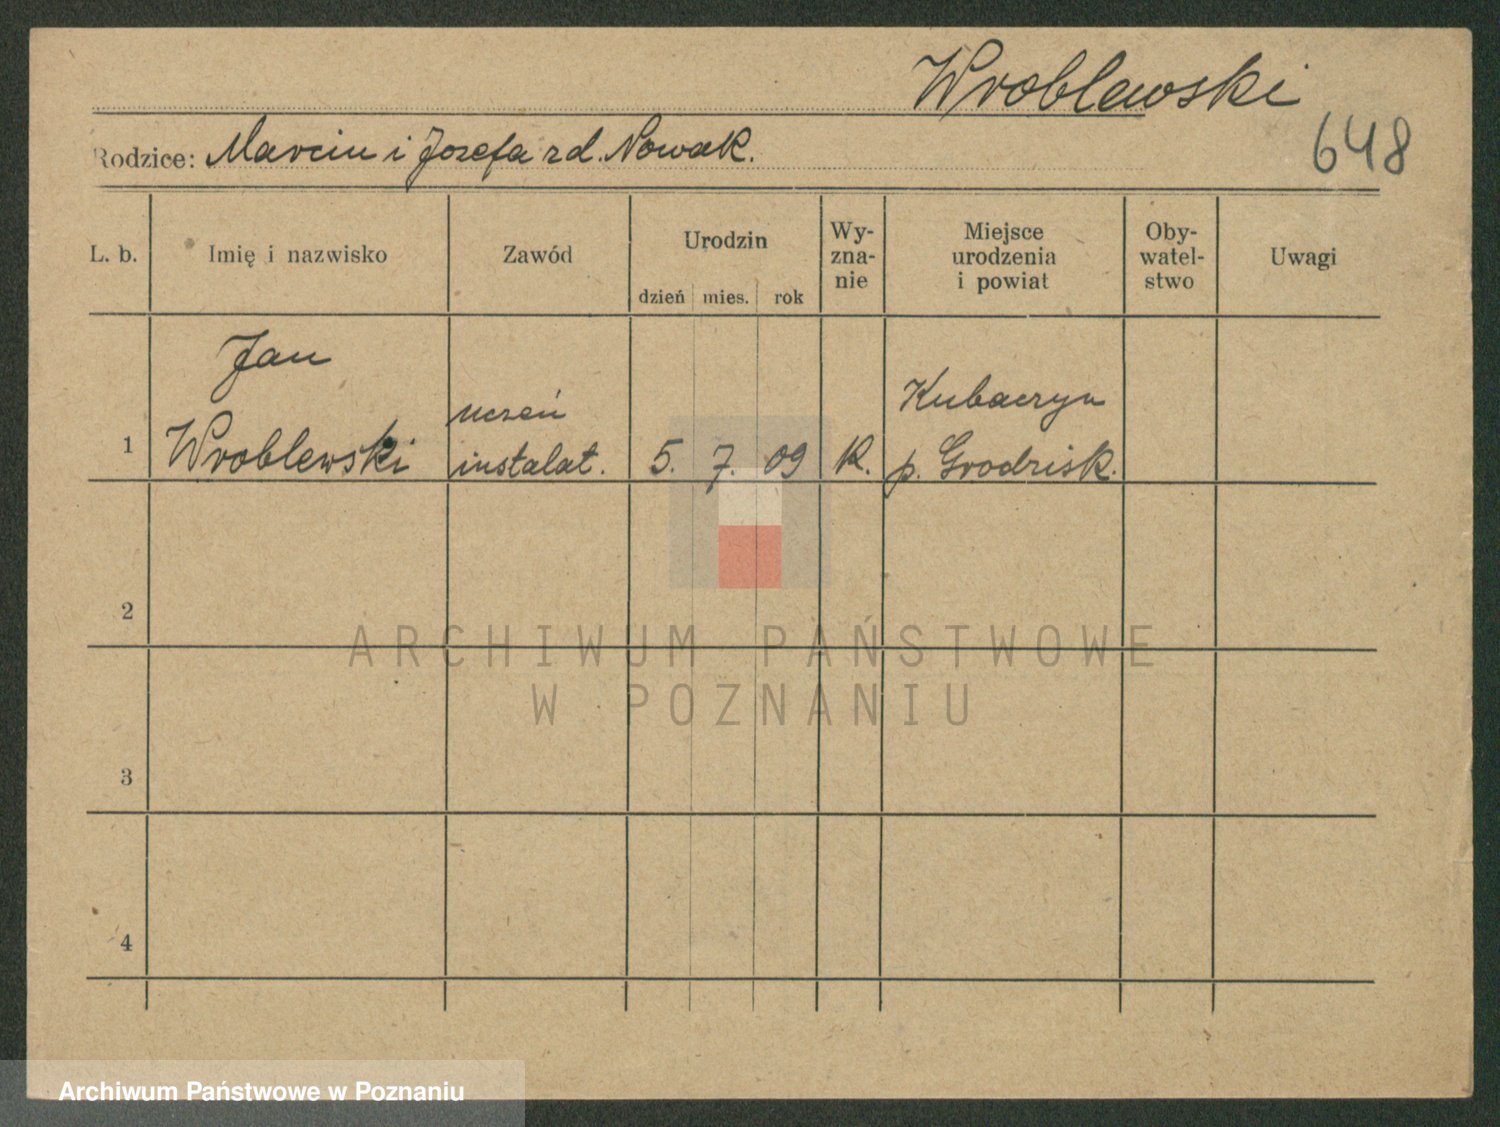 Wroblewski
648
Rodzice: Marcin i Jozefa zd. Nowak.
L. b. Imię i nazwisko Zawód Urodzin dzień mies. rok Wy-zna-nie Miejsce urodzenia i powiat Oby-watel-stwo Uwagi
Jan
Kubaczyn
uczeń
1 Wroblewski instalat. 5. 7. 09 K. p. Grodzisk.
2
ARCHIWUM PAŃSTWOWE
W POZNANIU
3
4
Archiwum Państwowe w Poznaniu